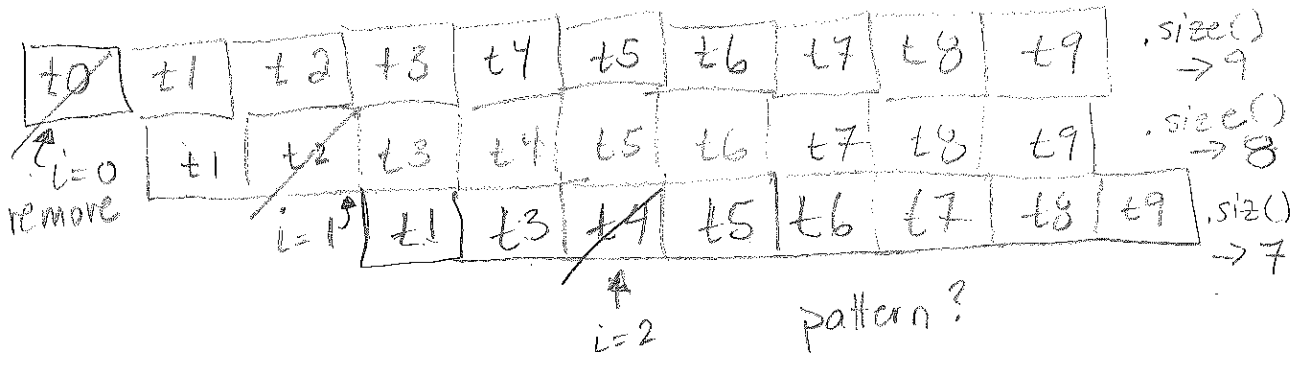 t0 t1 t2 t3 t4 t5 t6 t7 t8 t9 .size()
→ 9
i=0 t1 t2 t3 t4 t5 t6 t7 t8 t9 .size()
→ 8
remove i=1 t1 t3 t4 t5 t6 t7 t8 t9 .siz()
→ 7
i=2 pattern?